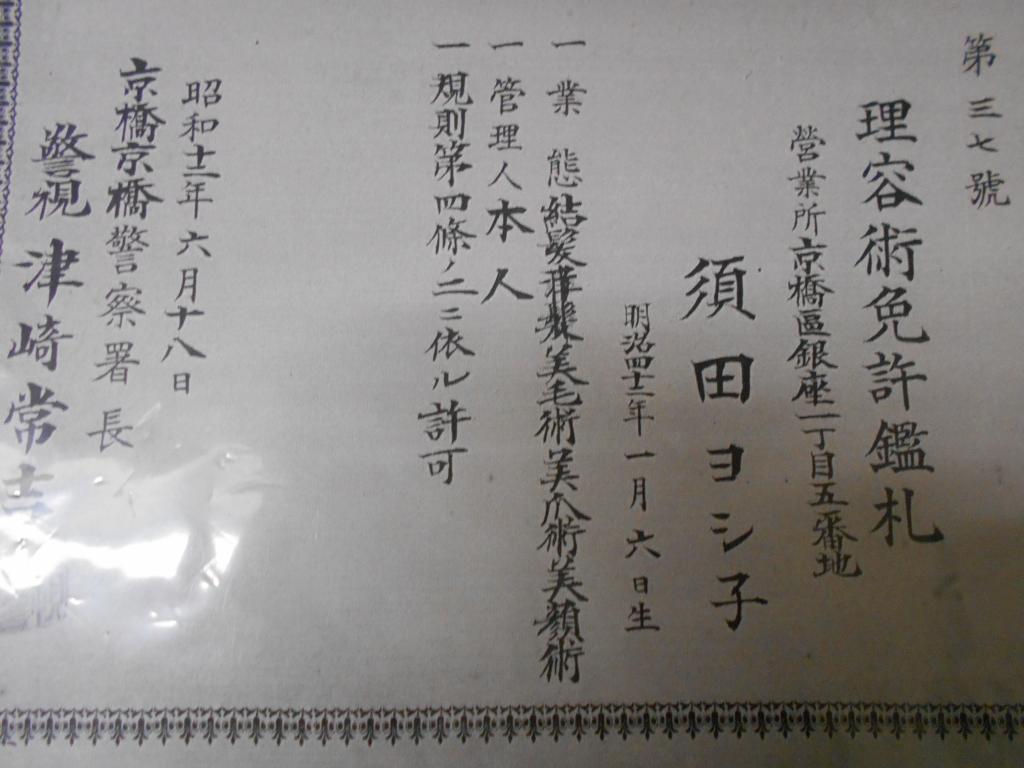 第三七號
理容術免許鑑札
營業所京橋區銀座一丁目五番地
須田ヨシ子
明治四十二年一月六日生
一業態結髮美髮美毛術美爪術美顏術
一管理人本人
一規則第四條ノ二ニ依ル許可
昭和十二年六月十八日
京橋京橋警察署長
警視津崎常吉